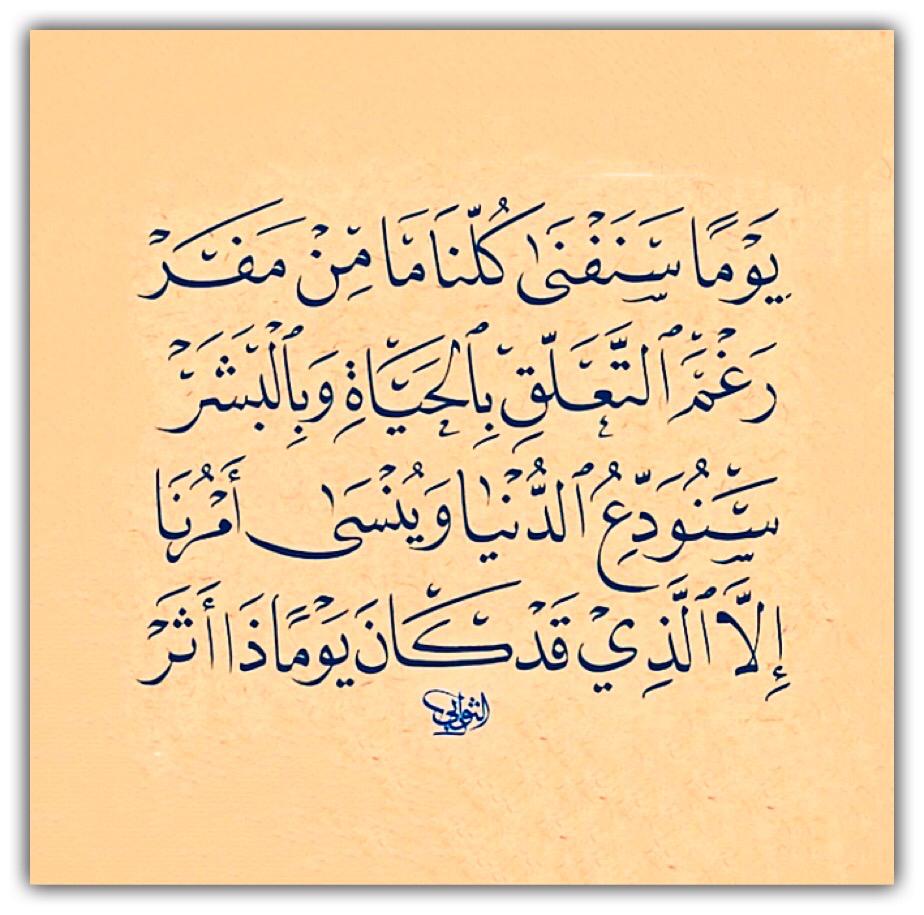 يَوْمًا سَنَفْنَىٰ كُلُّنَا مَا مِنْ مَفَرْ
رَغْمَ ٱلتَّعَلُّقِ بِٱلْحَيَاةِ وَبِٱلْبَشَرْ
سَنُوَدِّعُ ٱلدُّنْيَا وَيُنْسَىٰ أَمْرُنَا
إِلَّا ٱلَّذِي قَدْ كَانَ يَوْمًا ذَا أَثَرْ